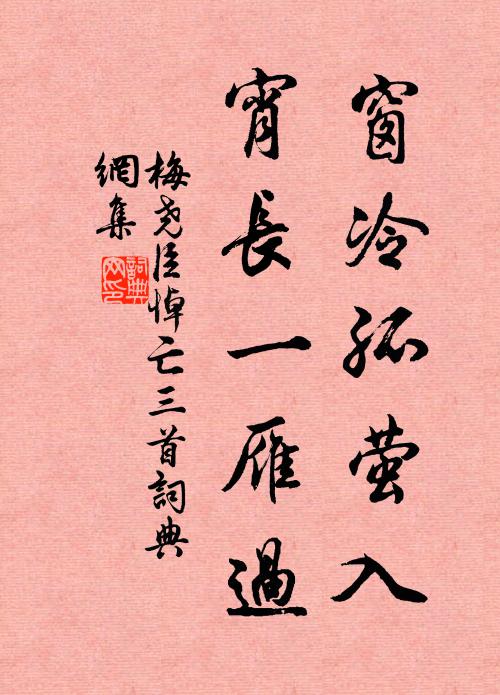 窗冷孤螢入
宵長一雁過
梅堯臣悼亡三首詞典
網集
詞典
網印